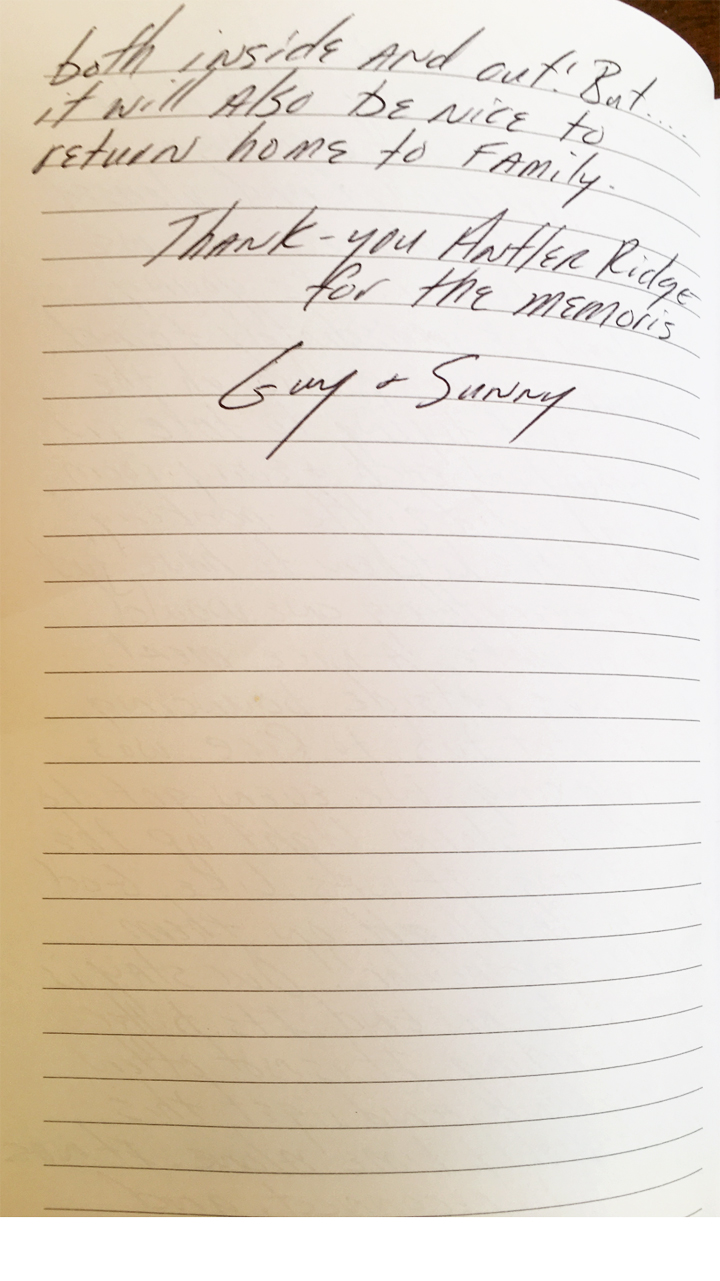 both inside and out! But....
it will also be nice to
return home to family.
Thank-you Antler Ridge
for the memoris
Guy + Sunny